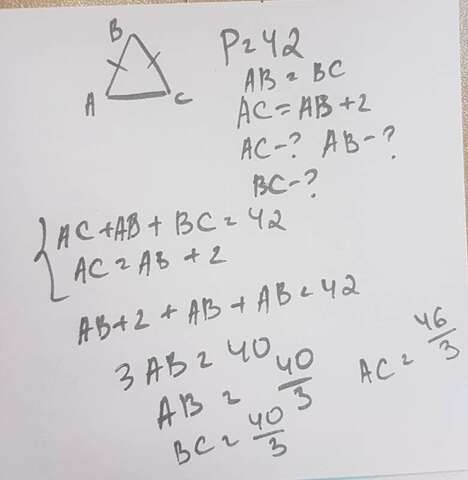 B
A
C
P = 42
AB = BC
AC = AB + 2
AC - ? AB - ?
BC - ?
{ AC + AB + BC = 42
AC = AB + 2
AB + 2 + AB + AB = 42
3 AB = 40
AB = 40/3
BC = 40/3
AC = 46/3